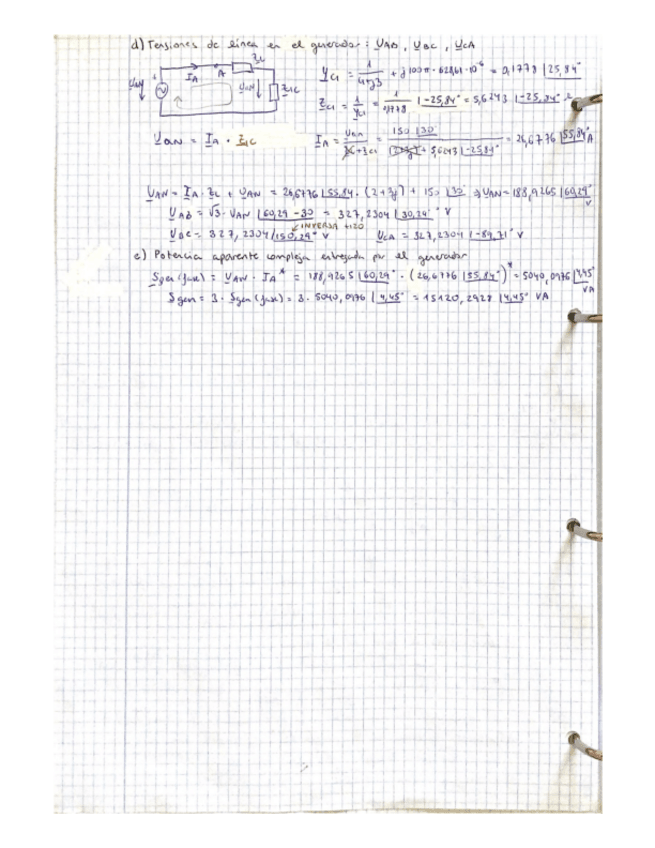 d) Tensiones de línea en el generador: UAB, UBC, UCA
ZL
IA A
UAN UaN ZLC
YC1 = 1 / 4+j3 + j100π · 628,61·10⁻⁶ = 0,1778 |25,84°
ZC1 = 1/YC1 = 1/0,1778 |-25,84° = 5,6243 |-25,84° Ω
UaN = IA · ZLC IA = UaN / ZC1 = 150 |30° / 5,6243 |-25,84° = 26,6776 |55,84° A
UAN = IA · ZL + UaN = 26,6776 |55,84 · (2+3j) + 150 |30° ⇒ UAN = 188,9265 |60,29° V
UAB = √3 · UAN |60,29 -30 = 327,2304 |30,29° V
INVERSA +120
UBC = 327,2304 |150,29° V UCA = 327,2304 |-89,71° V
e) Potencia aparente compleja entregada por el generador
Sgen (fase) = UAN · IA* = 188,9265 |60,29° · (26,6776 |55,84°)* = 5040,0976 |4,45° VA
Sgen = 3 · Sgen (fase) = 3 · 5040,0976 |4,45° = 15120,2928 |4,45° VA